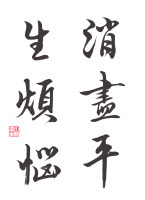 消盡平
生煩惱